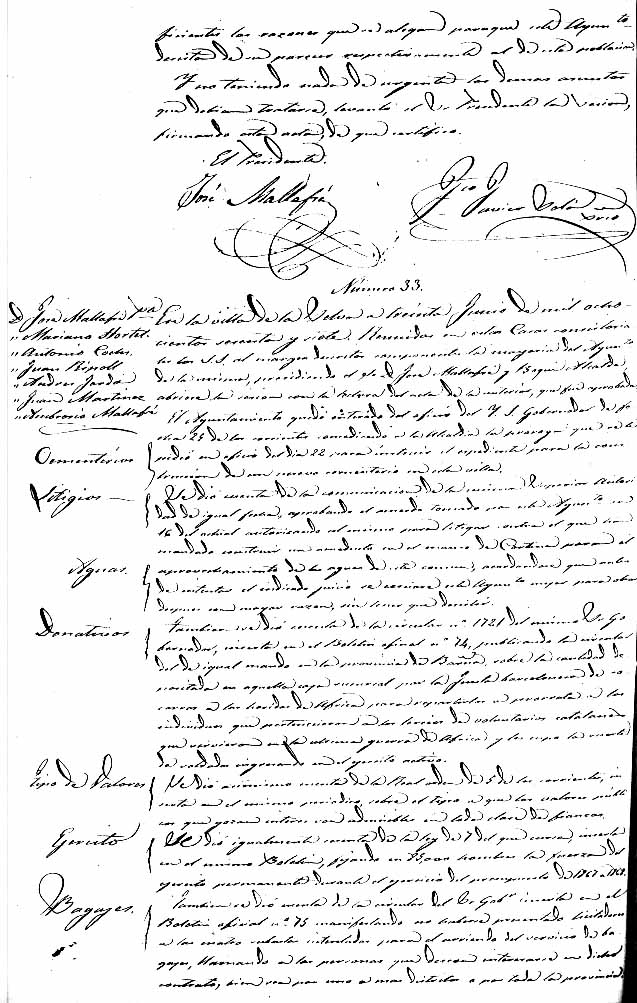 ficientes las razones que se alegan para que este Ayunto
decrita dé su parecer respectivamente al de esta poblacion.
Y no teniendo nada de urgente los demas asuntos
que debian tratarse, levantó el Sr Presidente la sesion,
firmando esta acta, de que certifico.
El Presidente.
José Mallafré
Número 33.
D. José Mallafré
" Mariano Hortet
" Antonio
" Juan Ripoll
" Andres Jordá
" Juan Martinez
" Ambrosio Mallafré
En la villa de la a treinta Junio de mil ocho-
cientos sesenta y siete. Reunidos en estas Casas consistoria-
les los S.S. al margen descritos componente la mayoria del Ayunto
de la misma, presidiendo el D. José Mallafré y Alcalde
abriose la sesion con la lectura del acta de la anterior, que fué aprobada.
Cementerios
El Ayuntamiento quedó enterado del oficio del M. I. Gobernador de fe-
cha 25 de los corrientes concediendo a la Alcaldia la que se le
pidió en oficio del dia 22 para instruir el espediente para la cons-
truccion de un nuevo cementerio en esta villa.
Litigios
Se dió cuenta de la comunicacion de la misma Superior Autori-
dad de igual fecha, aprobando el acuerdo tomado por este Ayunto en
16 del actual autorizando al mismo para litigar contra el que
mandado construir un acueducto en el manso de para el
Aguas.
aprovechamiento de las aguas de este comun; acordandose que antes
de intentar el indicado juicio se cerciore este Ayunto mejor para obrar
despues con mayor razon, sin tener que desistir.
Donativos
Tambien se dió cuenta de la circular nº 1721 del mismo Sr Go-
bernador, inserta en el Boletin oficial nº 74, publicando la circular
del de igual mando en la provincia de Barna, sobre la cantidad de-
positada en aquella caja sucursal por la Junta barcelonesa de so-
corros a los heridos de Africa para repartirlos a prorrata a los
individuos que pertenecieron a los tercios de voluntarios catalanes
que sirvieron en la ultima guerra de Africa y les cupo la suerte
de soldados ingresando en el ejercito activo.
Tipo de Valores
Se dió asimismo cuenta de la Real orden de 5 de los corrientes, in-
serta en el mismo periodico, sobre el tipo a que los valores publi-
cos que gozan interes son admisibles en toda clase de fianzas.
Ejercito
Se dió igualmente cuenta de la ley de 7 del que cursa, inserta
en el mismo Boletin, fijando en hombres la fuerza del
ejercito permanente durante el ejercicio del presupuesto de 1867 a 1868.
Bagajes.
Tambien se dió cuenta de la circular del Sr Gobr inserta en el
Boletin oficial nº 75 manifestando no haberse presentado licitadores
a las subastas intentadas para el arriendo del servicio de ba-
gajes, llamando a las personas que deseen interesarse en dicho
contrato, bien sea por uno o mas distritos o por toda la provincia